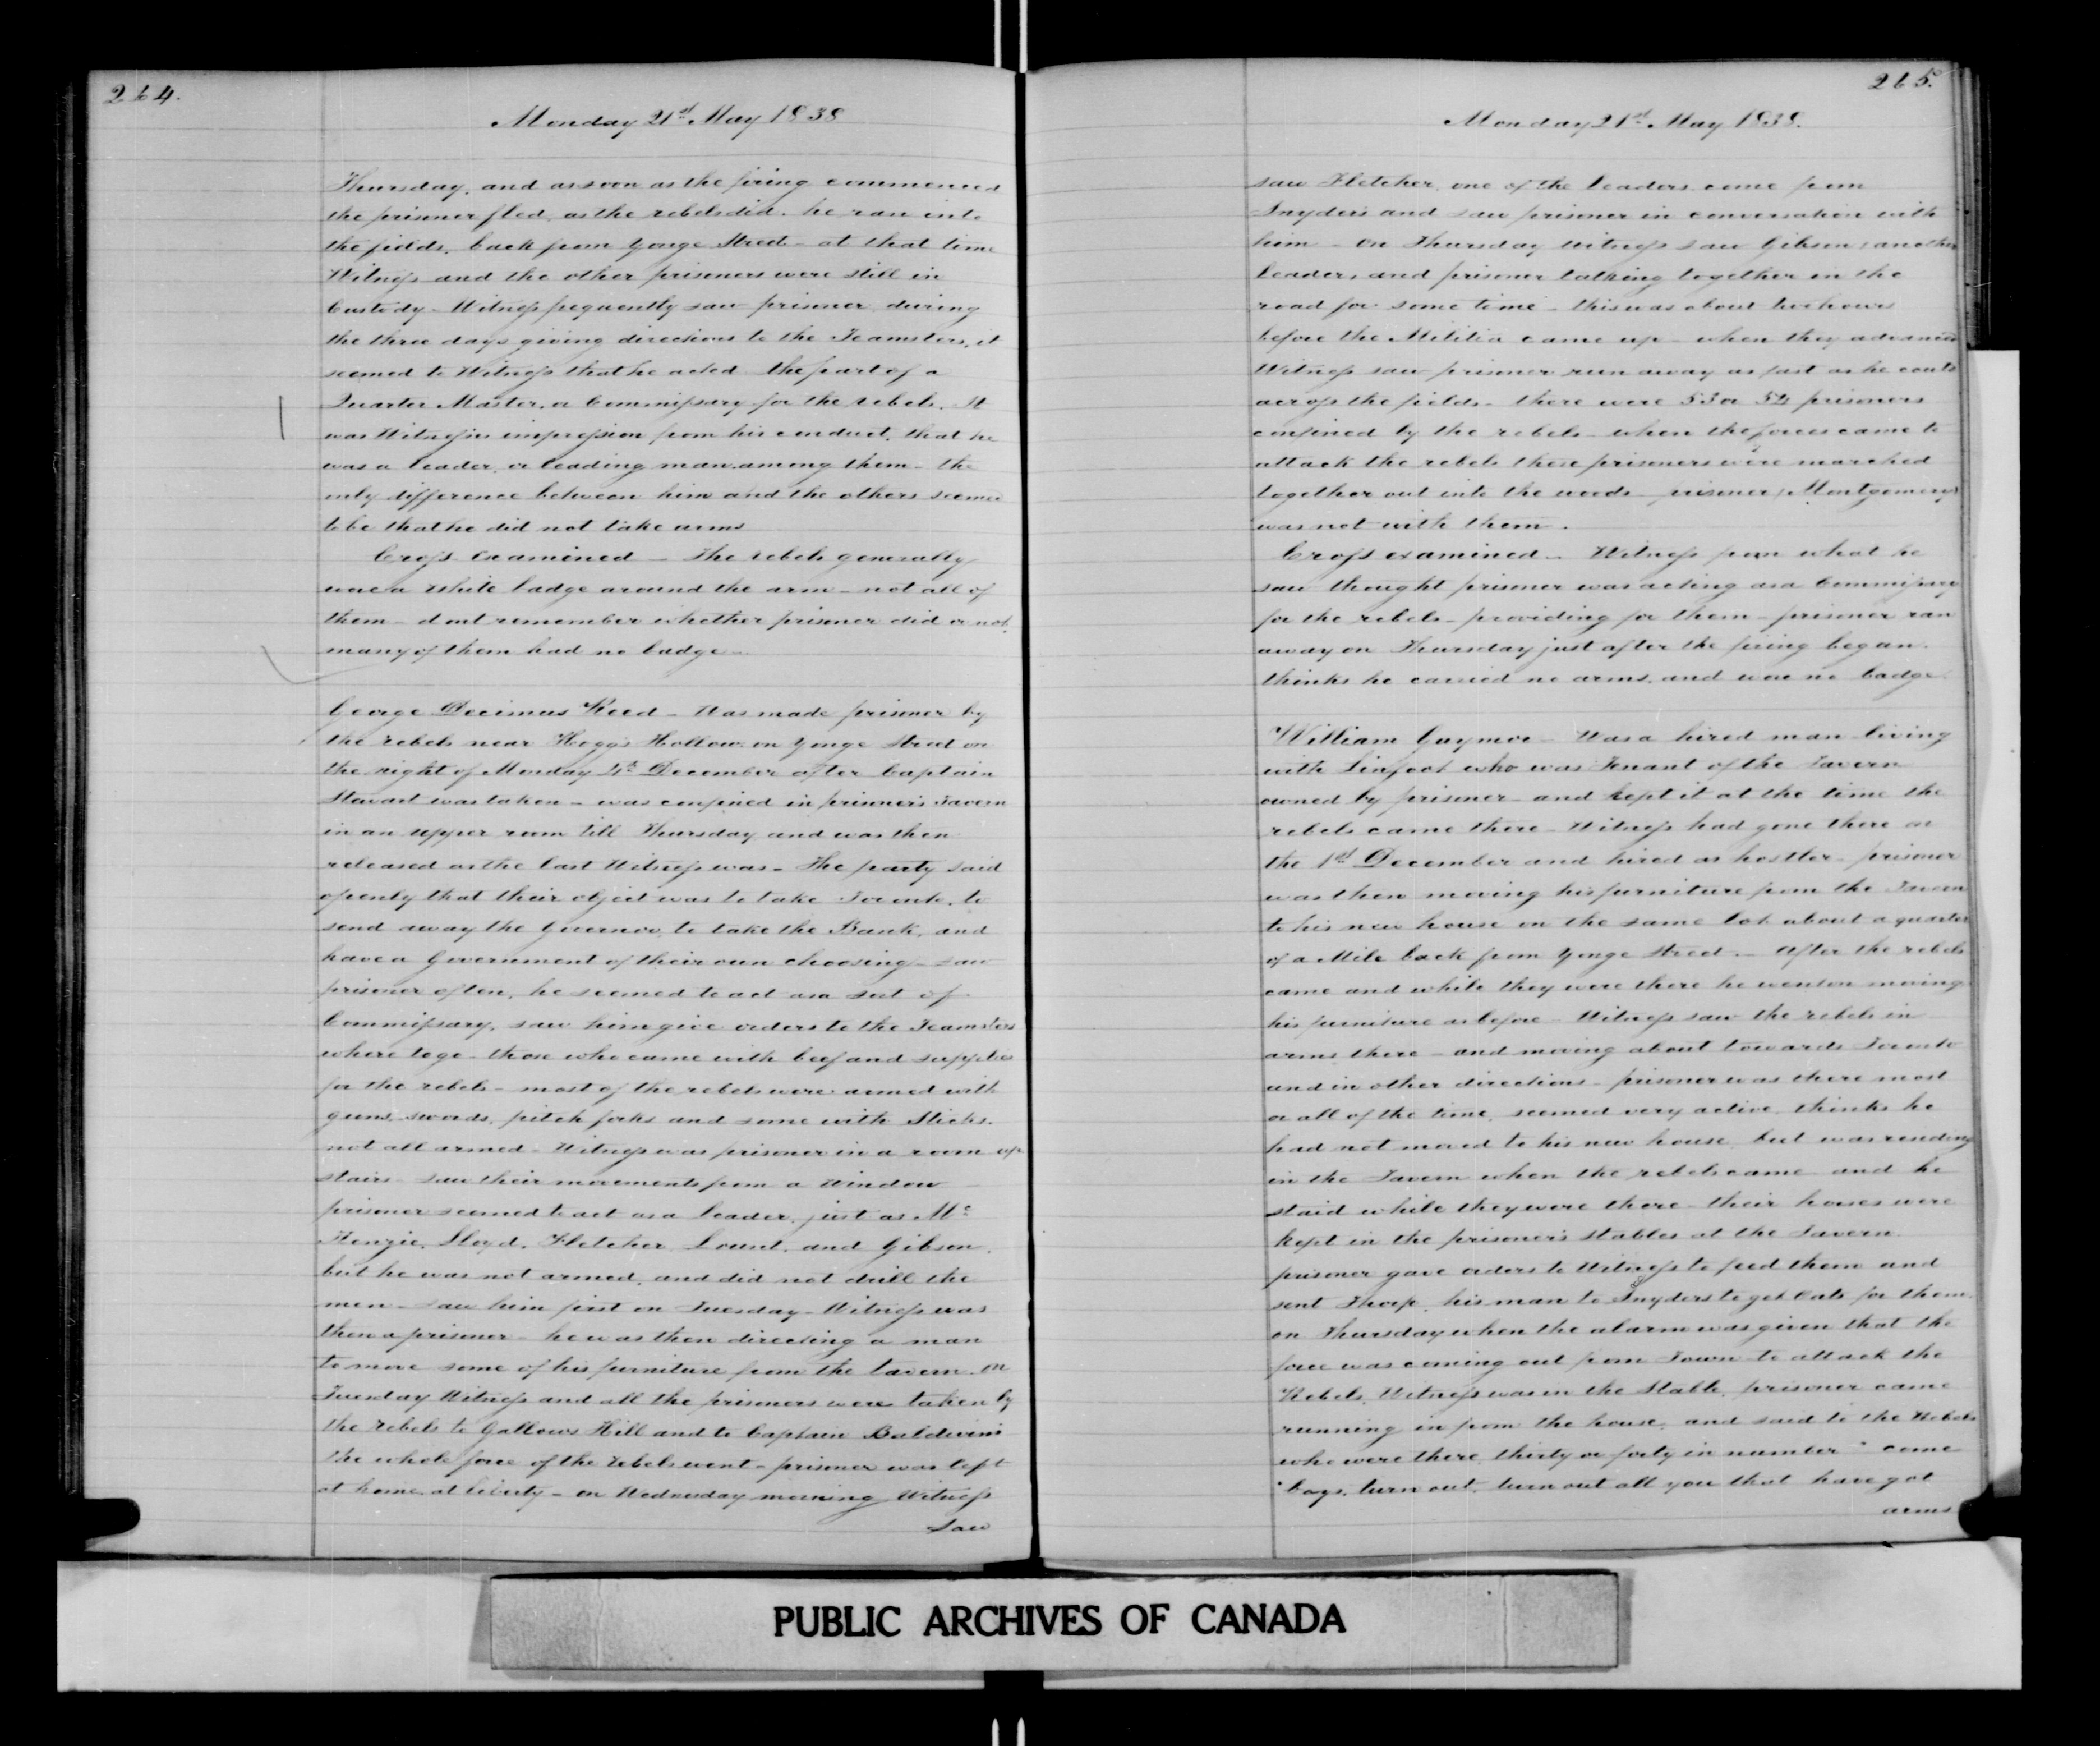 264.
Monday 21st May 1838
Thursday, and as soon as the firing commenced
the prisoner fled, as the rebels did. he ran into
the fields, back from Yonge Street - at that time
Witness and the other prisoners were still in
Custody - Witness frequently saw prisoner during
the three days giving directions to the Teamsters, it
seemed to Witness that he acted the part of a
Quarter Master, or Commissary for the rebels. It
was Witness's impression from his conduct, that he
was a leader, or leading man among them - the
only difference between him and the others seemed
to be that he did not take arms
Cross Examined - The rebels generally
wore a white badge around the arm - not all of
them - dont remember whether prisoner did or not.
many of them had no badge -
George Decimus Reed - Was made prisoner by
the rebels near Hogg's Hollow on Yonge Street on
the night of Monday 4th December after Captain
Stewart was taken - was confined in prisoner's Tavern
in an upper room till Thursday and was then
released as the last Witness was - The party said
openly that their object was to take Toronto, to
send away the Governor, to take the Bank, and
have a Government of their own choosing - saw
prisoner often, he seemed to act as a sort of
Commissary, saw him give orders to the Teamsters
where to go - those who came with beef and supplies
for the rebels - most of the rebels were armed with
guns, swords, pitch forks and some with Sticks.
not all armed - Witness was prisoner in a room up
stairs - saw their movements from a Window -
prisoner seemed to act as a leader, just as Mc
Kenzie, Lloyd, Fletcher, Lount, and Gibson,
but he was not armed, and did not drill the
men - saw him first on Tuesday - Witness was
then a prisoner - he was then directing a man
to move some of his furniture from the tavern. on
Tuesday Witness and all the prisoners were taken by
the rebels to Gallows Hill and to Captain Baldwin's
the whole force of the rebels went - prisoner was left
at home at liberty - on Wednesday morning Witness
saw
265.
Monday 21st May 1838.
saw Fletcher, one of the leaders come from
Snyders and saw prisoner in conversation with
him - On Thursday Witness saw Gibson, another
leader, and prisoner talking together in the
road for some time - this was about two hours
before the Militia came up - when they advanced
Witness saw prisoner run away as fast as he could
across the fields - there were 53 or 54 prisoners
confined by the rebels - when the forces came to
attack the rebels these prisoners were marched
together out into the woods - prisoner, Montgomery
was not with them.
Cross examined - Witness from what he
saw thought prisoner was acting as a Commissary
for the rebels - providing for them - prisoner ran
away on Thursday just after the firing began.
thinks he carried no arms, and wore no badge.
William Gaymor - Was a hired man living
with Linfoot who was Tenant of the Tavern
owned by prisoner - and kept it at the time the
rebels came there - Witness had gone there on
the 1st December and hired as hostler - prisoner
was then moving his furniture from the Tavern
to his new house on the same lot about a quarter
of a Mile back from Yonge Street. - After the rebels
came and while they were there he went on moving
his furniture as before - Witness saw the rebels in
arms there - and moving about towards Toronto
and in other directions - prisoner was there most
or all of the time, seemed very active, thinks he
had not moved to his new house but was residing
in the Tavern when the rebels came and he
staid while they were there - their horses were
kept in the prisoner's stables at the Tavern
prisoner gave orders to Witness to feed them and
sent Thorp, his man to Snyders to get Oats for them.
on Thursday when the alarm was given that the
force was coming out from Town to attack the
Rebels, Witness was in the Stable, prisoner came
running in from the house, and said to the Rebels
who were there, thirty or forty in number "come
"boys, turn out, turn out all you that have got
arms
PUBLIC ARCHIVES OF CANADA